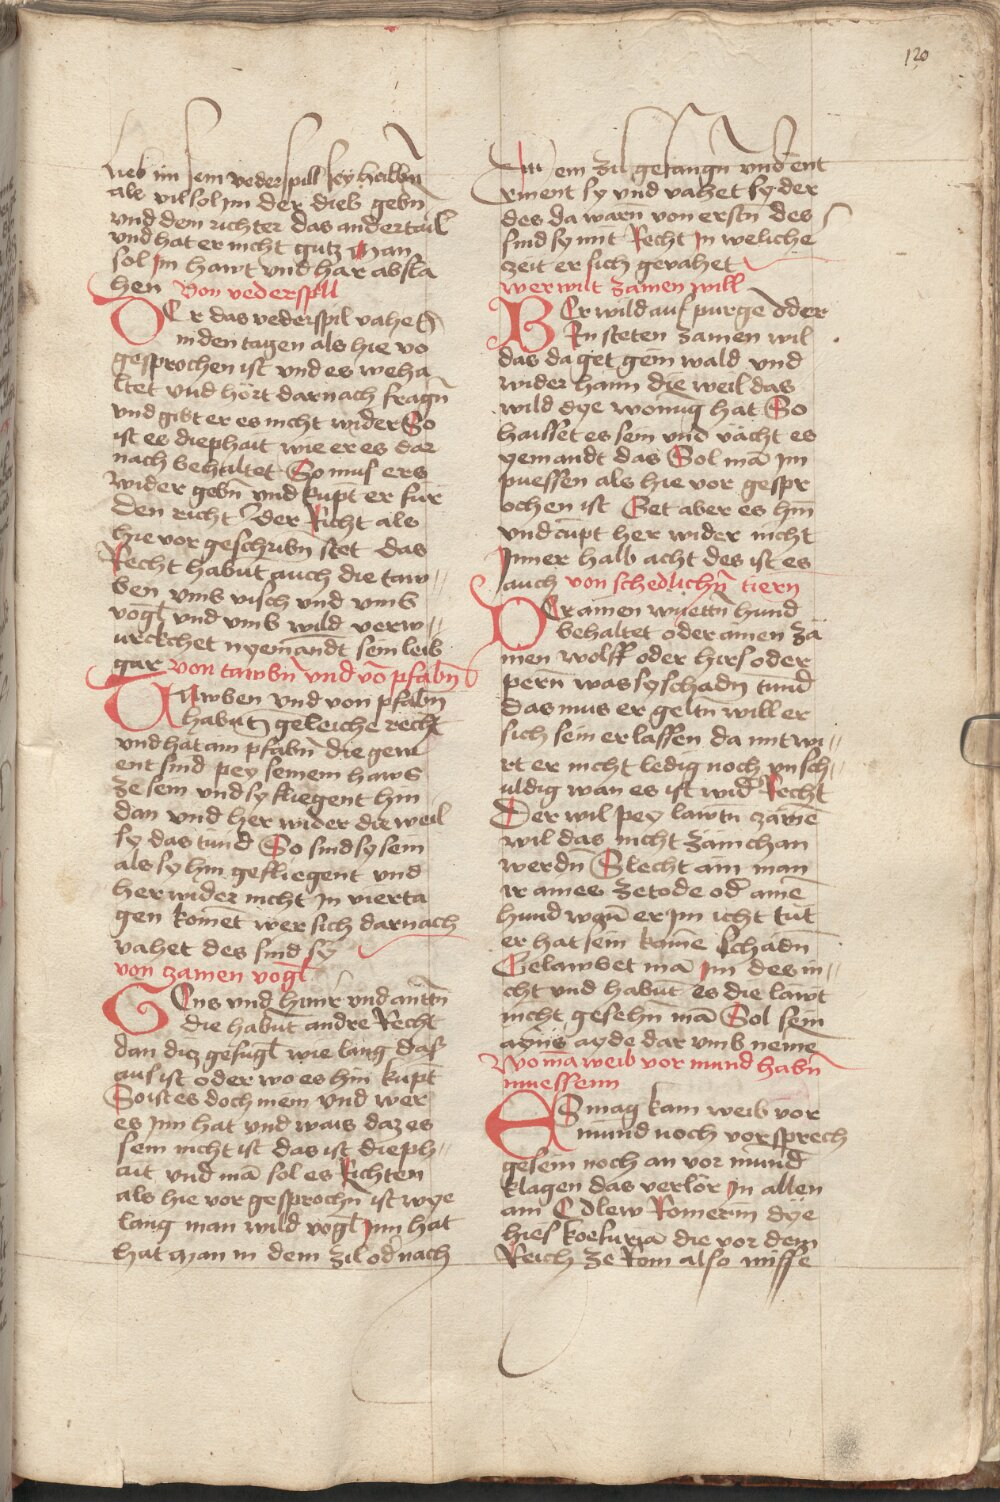 120
lieb im sein vederspill sey halbn
als vil sol im der dieb gebn
vnd dem richter das andertail
vnd hat er nicht gutz Man
sol Im hawt vnd har absla
hen Von vederspil
DEr das vederspil vahet
in den tagen als hie vo
gesprochen ist vnd es weha
ltet vnd hört darnach fragn
vnd gibt er es nicht wider So
ist es diephait wie er es dar
nach behaltet So mus ers
wider gebn vnd kupt er fur
den richt der Richt als
hie vor geschribn stet das
Recht habnt auch die taw
ben vmb visch vnd vmb
vogl vnd vmb wild verw
urckchet nyemandt sein leib
gar von tawbn vnd vō pfabn
TAwben vnd von pfabn
habnt geleiche recht
vnd hat ain pfabn die gew
ent sind pey seinem haws
ze sein vnd sy fliegent hin
dan vnd her wider die weil
sy das tund So sind sy sein
als sy hin gefliegent vnd
her wider nicht In vierta
gen komet wer sich darnach
vahet des sind sy
von zamen vogl
GEns vnd hunr vnd anttn
die habnt andre Recht
dan ditz gefugl wie lang das
aus ist oder wo es hin kupt
So ist es doch mein vnd wer
es Inn hat vnd wais daz es
sein nicht ist das ist dieph
ait vnd mā sol es Richten
als hie vor gesprochn ist wye
lang man wild vogl Inn hat
hat man in dem zil od nach
dem zil gefangn vnd ent
rinent sy vnd vahet sy der
des da warn von erstn des
sind sy mit Recht Inweliche
zeit er sich gevahet
wer wilt zamen will
WEr wild auf purge oder
In steten zamen wil
das da get gein wald vnd
wider haim die weil das
wild dye wonūg hat So
haisset es sein vnd vächt es
yemandt das Sol mā Im
puessen als hie vor gespr
ochen ist Get aber es hin
vnd cupt her wider nicht
Inner halb acht des ist es
auch von schedlichn tiern
DEr ainen wuettn hund
behaltet oder ainen zä
men wolff oder hirs oder
pern was sy schadn tund
das mus er geltn will er
sich sein erlassen da mit wi
rt er nicht ledig noch vnsch
uldig wan es ist wid Recht
Der wil pey lawtn zamē
wil das nicht zäm chan
werdn Slecht ain man
ir aines ze tode od ainē
hund wan er Im icht tut
er hat sein kaine schadn
Gelawbet mā Im des ni
cht vnd habnt es die lawt
nicht gesehn mā Sol sein
ayns ayde dar vmb nemē
Wo mā weib vor mund habn
muessenn
ES mag kain weib vor
mund noch vorsprech
gesein noch an vor mund
klagen das verlor In allen
ain Edlew Romerin dye
hies koefuria die vor dem
Reich ze Rom also misse